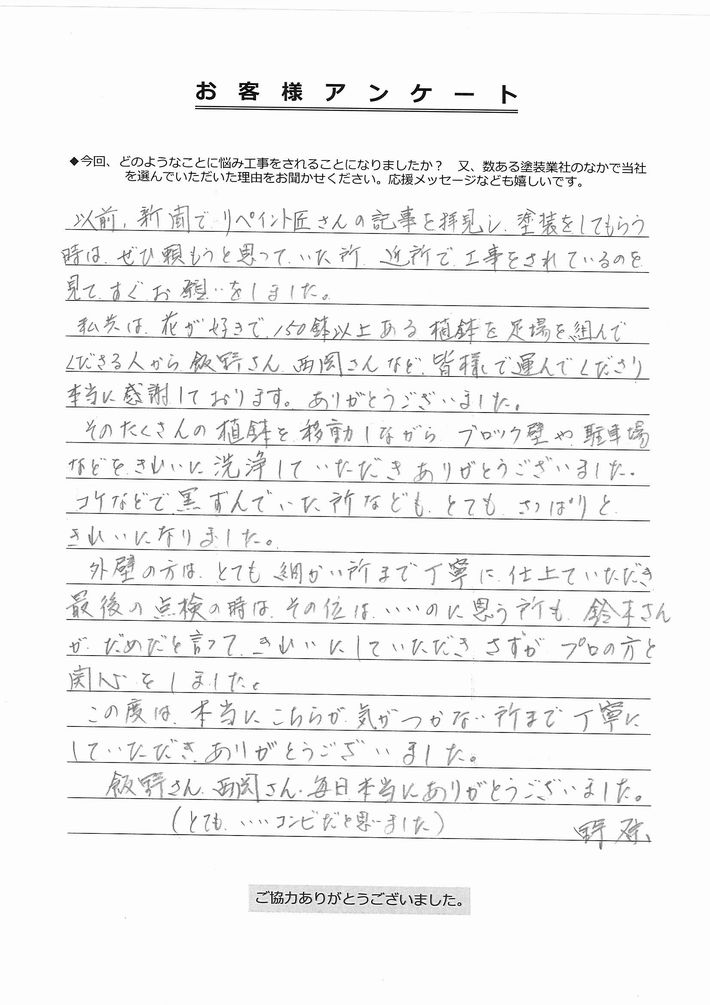 お客様アンケート
◆今回、どのようなことに悩み工事をされることになりましたか？　又、数ある塗装業社のなかで当社
を選んでいただいた理由をお聞かせください。応援メッセージなども嬉しいです。
以前、新聞で、リペイント匠さんの記事を拝見し、塗装をしてもらう
時は、ぜひ頼もうと思って、いた所、近所で、工事をされているのを
見て、すぐお願いをしました。
私共は、花が好きで、150鉢以上ある植鉢を足場を組んで
くださる人から飯野さん、西岡さんなど、皆様で運んでくださり
本当に感謝しております。ありがとうございました。
そのたくさんの植鉢を移動しながら ブロック壁や、駐車場
などを、きれいに洗浄していただきありがとうございました。
コケなどで黒ずんでいた所なども、とても、さっぱりと、
きれいになりました。
外壁の方は、とても細かい所まで丁寧に、仕上ていただき
最後の点検の時は、その位は、いいのに思う所も、鈴木さん
が、だめだと言って、きれいにしていただき、さすが、プロの方と
関心をしました。
この度は、本当に、こちらが、気がつかない所まで丁寧に
していただき、ありがとうございました。
飯野さん、西岡さん、毎日本当にありがとうございました。
(とても、いいコンビだと思いました)
ご協力ありがとうございました。